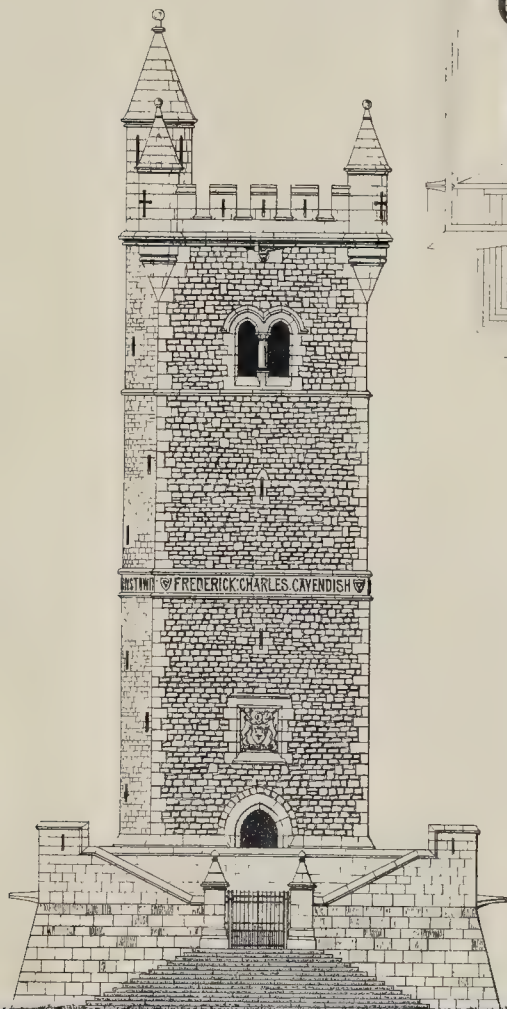 FREDERICK·CHARLES·CAVENDISH